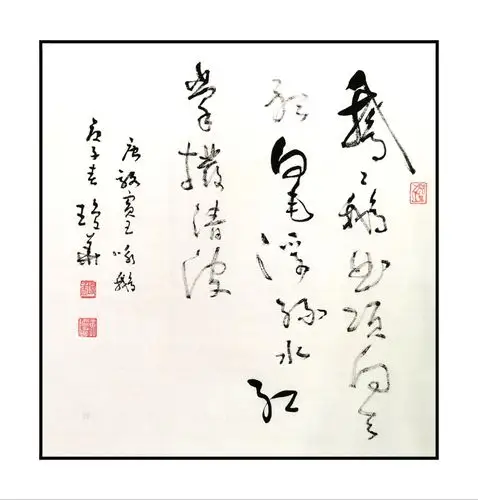 鵝々鵝曲項向天
歌白毛浮綠水紅
掌撥清波
唐駱賓王咏鵝
庚子春